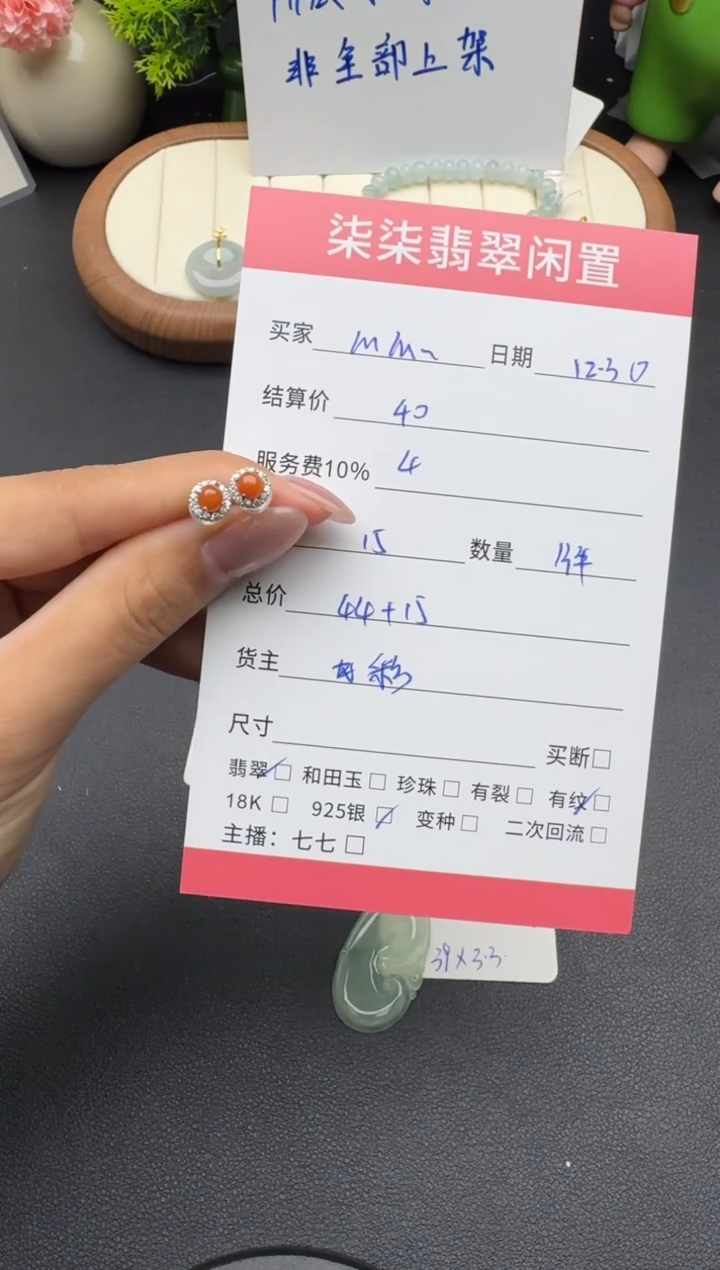 非全部上架
柒柒翡翠闲置
买家 mm~ 日期 12-30
结算价 40
服务费10% 4
15 数量 1件
总价 44+15
货主
尺寸 买断
翡翠 和田玉 珍珠 有裂 有纹
18K 925银 变种 二次回流
主播：七七
39×3.3